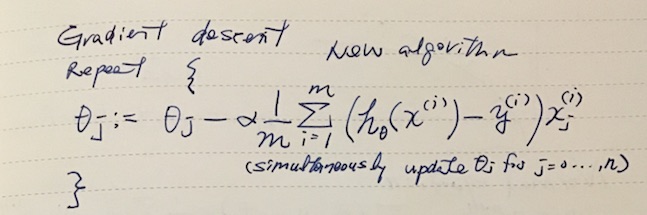 Gradient descent
New algorithm
Repeat {
θj := θj − α 1/m Σ_{i=1}^{m} (hθ(x^(i)) − y^(i)) xj^(i)
(simultaneously update θj for j=0...,n)
}